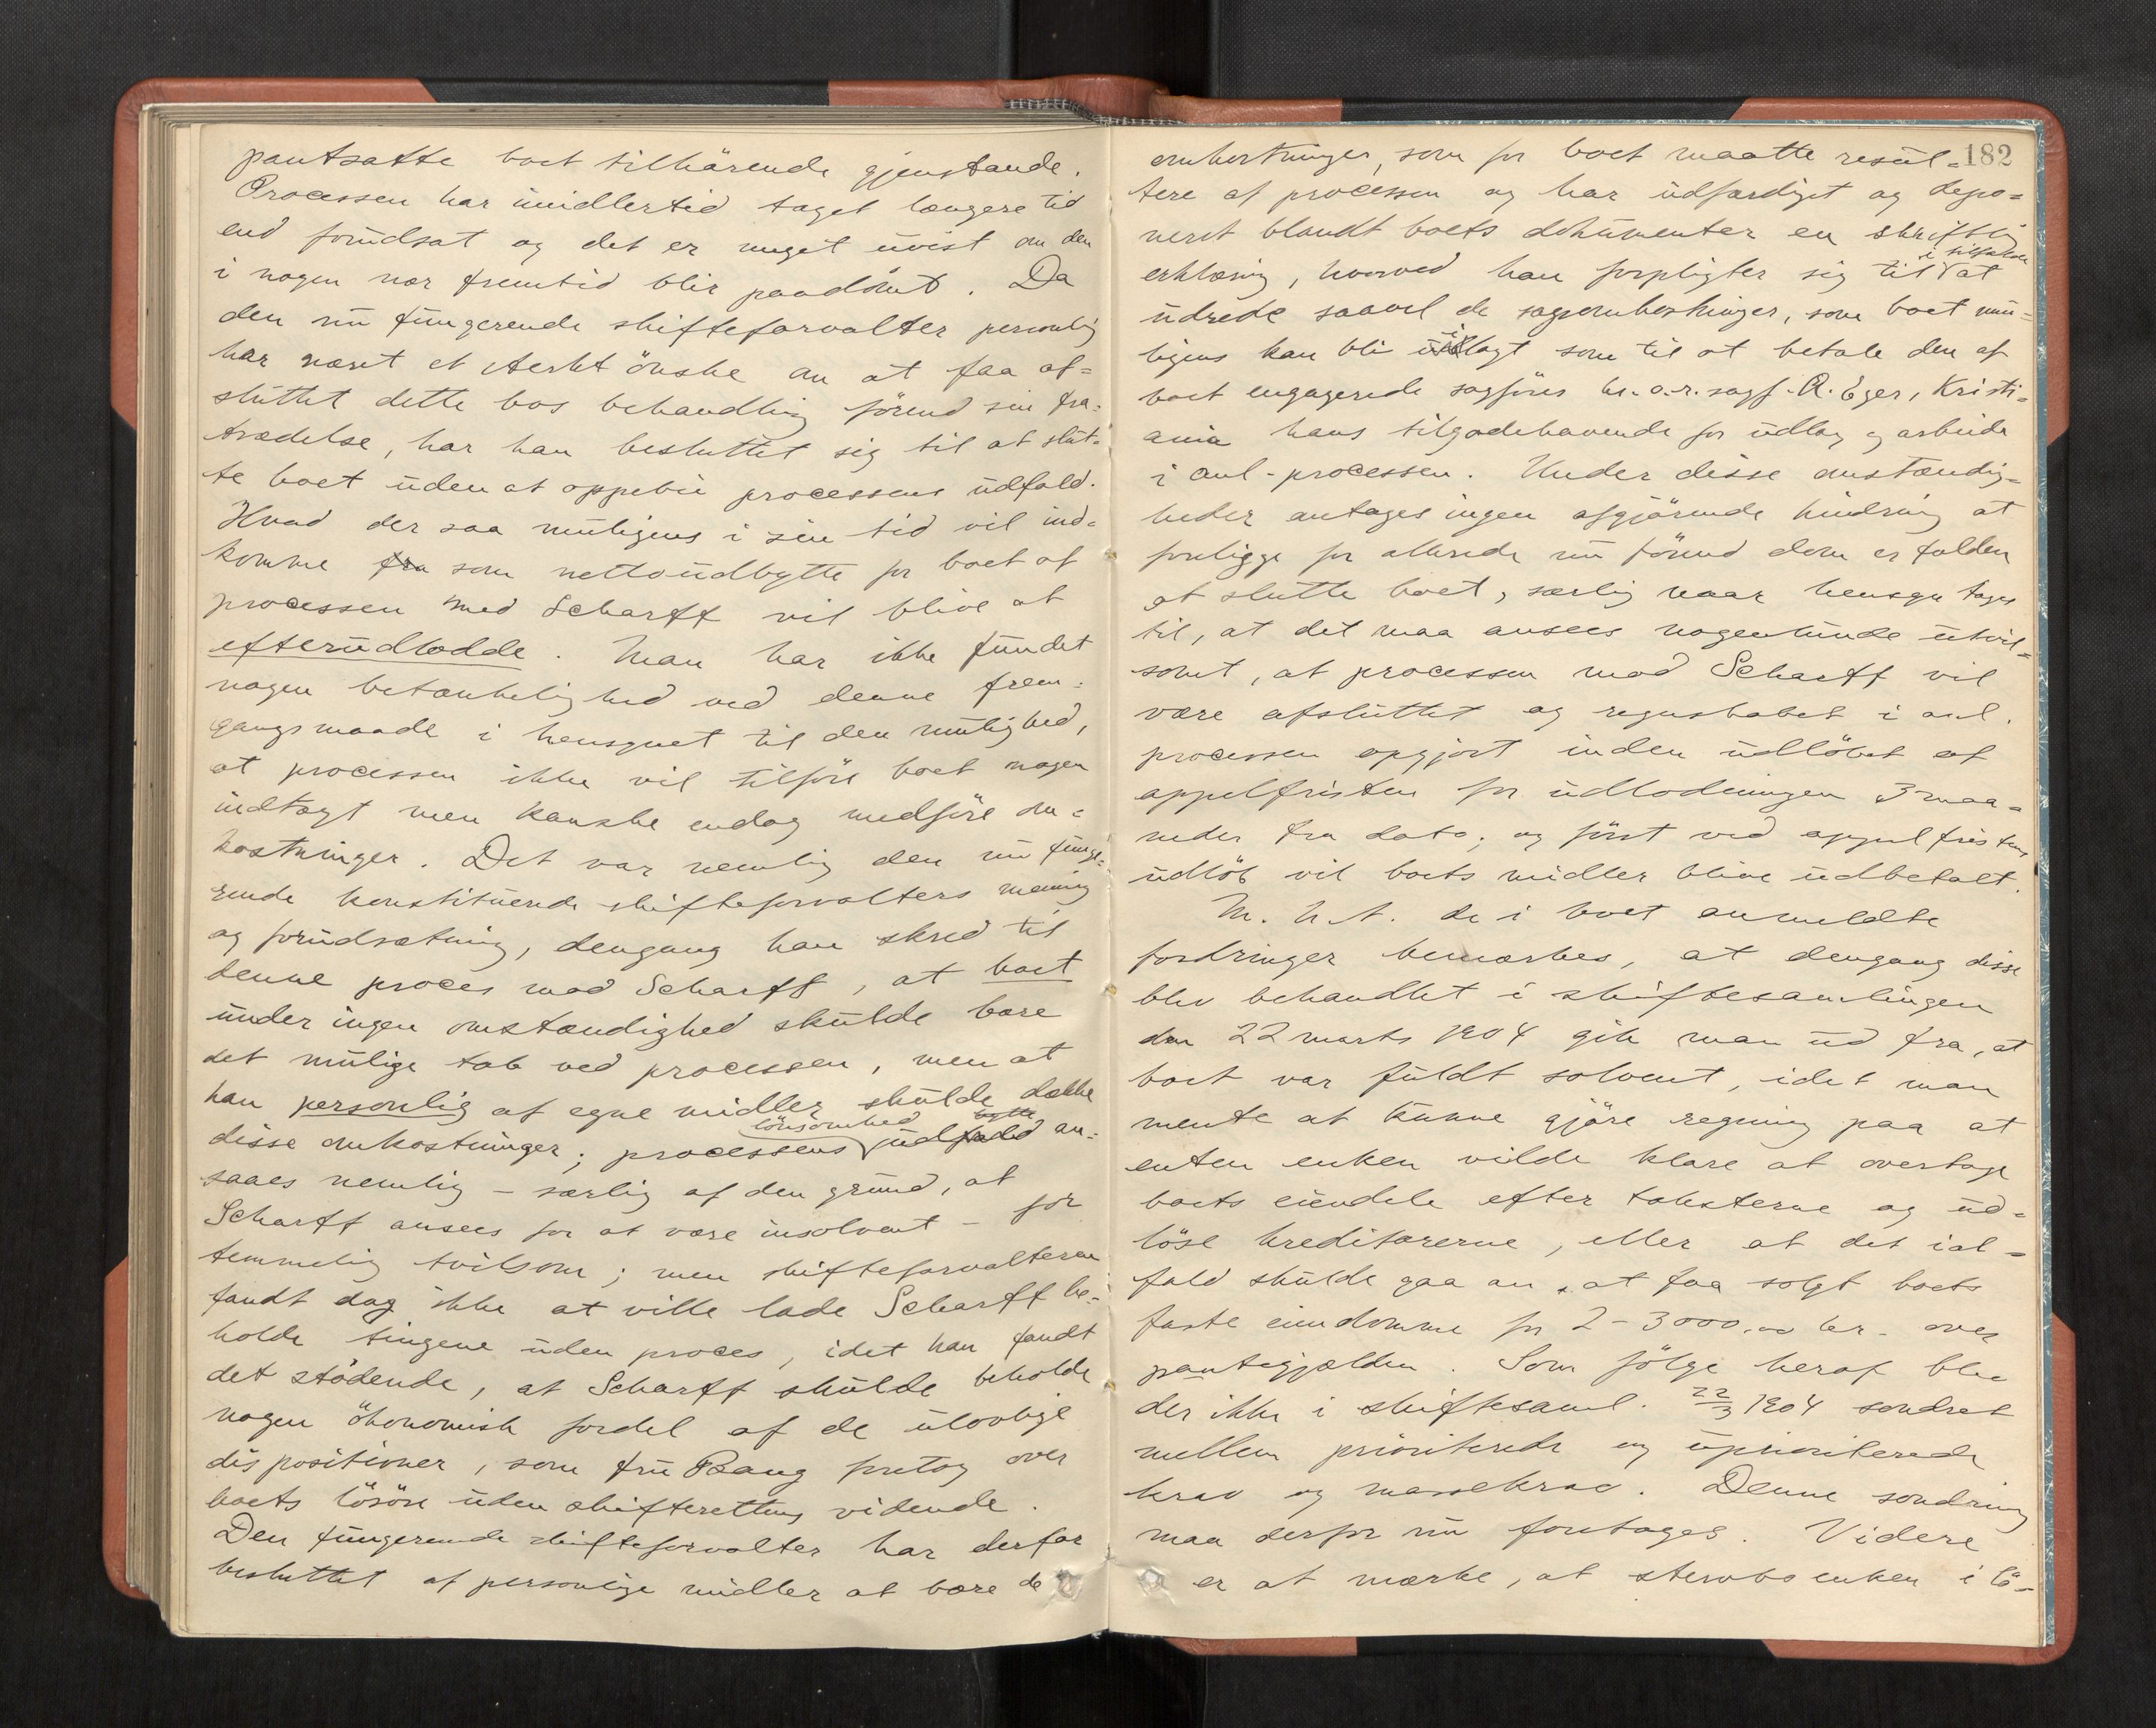 pantsatte boet tilhörende gjenstande.
Processen har imidlertid taget længere tid
end forudsat og det er meget uvist om den
i nogen nær fremtid blir paadömt. Da
den nu fungerende skifteforvalter personlig
har næret et sterkt önske om at faa af-
sluttet dette bos behandling förend sin fra-
trædelse, har han besluttet sig til at slut-
te boet uden at oppebie processens udfald.
Hvad der saa muligens i sin tid vil ind-
komme fra som nettoudbytte for boet af
processen mod Scharff vil blive at
efterudlodde. Man har ikke fundet
nogen betænkelighed ved denne frem-
gangsmaade i hensynet til den mulighed,
at processen ikke vil tilföre boet nogen
indtægt men kanske endog medföre om-
kostninger. Det var nemlig den nu funge-
rende konstituerede skifteforvalters mening
og forudsætning, dengang han skred til
denne proces mod Scharff, at boet
under ingen omstændighed skulde bære
det mulige tab ved processen, men at
han personlig af egne midler skulde dække
lönsomhed
disse omkostninger; processens udfald an-
saaes nemlig – særlig af den grund, at
Scharff ansees for at være insolvent – for
temmelig tvilsom; men skifteforvalteren
fandt dog ikke at ville lade Scharff be-
holde tingene uden proces, idet han fandt
det stödende, at Scharff skulde beholde
nogen ökonomisk fordel af de ulovlige
dispositioner, som fru Bang foretog over
boets lösöre uden skifterettens vidende.
Den fungerende skifteforvalter har derfor
besluttet af personlige midler at bære de
182
omkostninger, som for boet maatte resul-
tere af processen og har udfærdiget og depo-
neret blandt boets dokumenter en skriftlig
i tilfælde
erklæring, hvorved han forpligter sig til at
udrede saavel de sagsomkostninger, som boet mu-
ligens kan bli ilagt som til at betale den af
boet engagerede sagförer hr. o.r.sagf. A. Eger, Kristi-
ania hans tilgodehavende for udlæg og arbeide
i anl-processen. Under disse omstændig-
heder antages ingen afgjörende hindring at
foreligge for allerede nu förend dom er falden
at slutte boet, særlig naar hensyn tages
til, at det maa ansees nogenlunde utvil-
somt, at processen mod Scharff vil
være afsluttet og regnskabet i anl.
processen opgjort inden udlöbet af
appelfristen for udlodningen 3 maa-
neder fra dato; og först ved appelfristens
udlöb vil boets midler blive udbetalt.
M. h. t. de i boet anmeldte
fordringer bemærkes, at dengang disse
blev behandlet i skiftesamlingen
den 22 marts 1904 gik man ud fra, at
boet var fuldt solvent, idet man
mente at kunne gjöre regning paa at
enten enken vilde klare at overtage
boets eiendele efter taksterne og ud-
löse kreditorerne, eller at det ial-
fald skulde gaa an, at faa solgt boets
faste eiendomme for 2 – 3000,00 kr. over
pantegjælden. Som fölge heraf blev
der ikke i skiftesaml. 22/3 1904 sondret
mellem prioriterede og uprioriterede
krav og massekrav. Denne sondring
maa derfor nu foretages. Videre
er at mærke, at stervbo enken i lö-